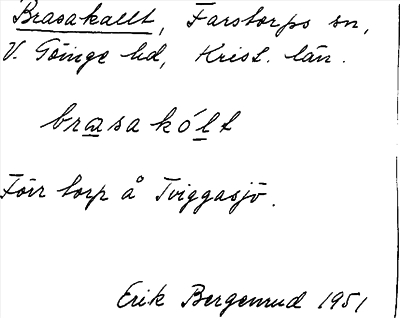 Brasakallt, Farstorps sn,
V. Göinge hd, Krist. län.
brasakólt
Förr torp å Tviggasjö.
Erik Bergenrud 1951